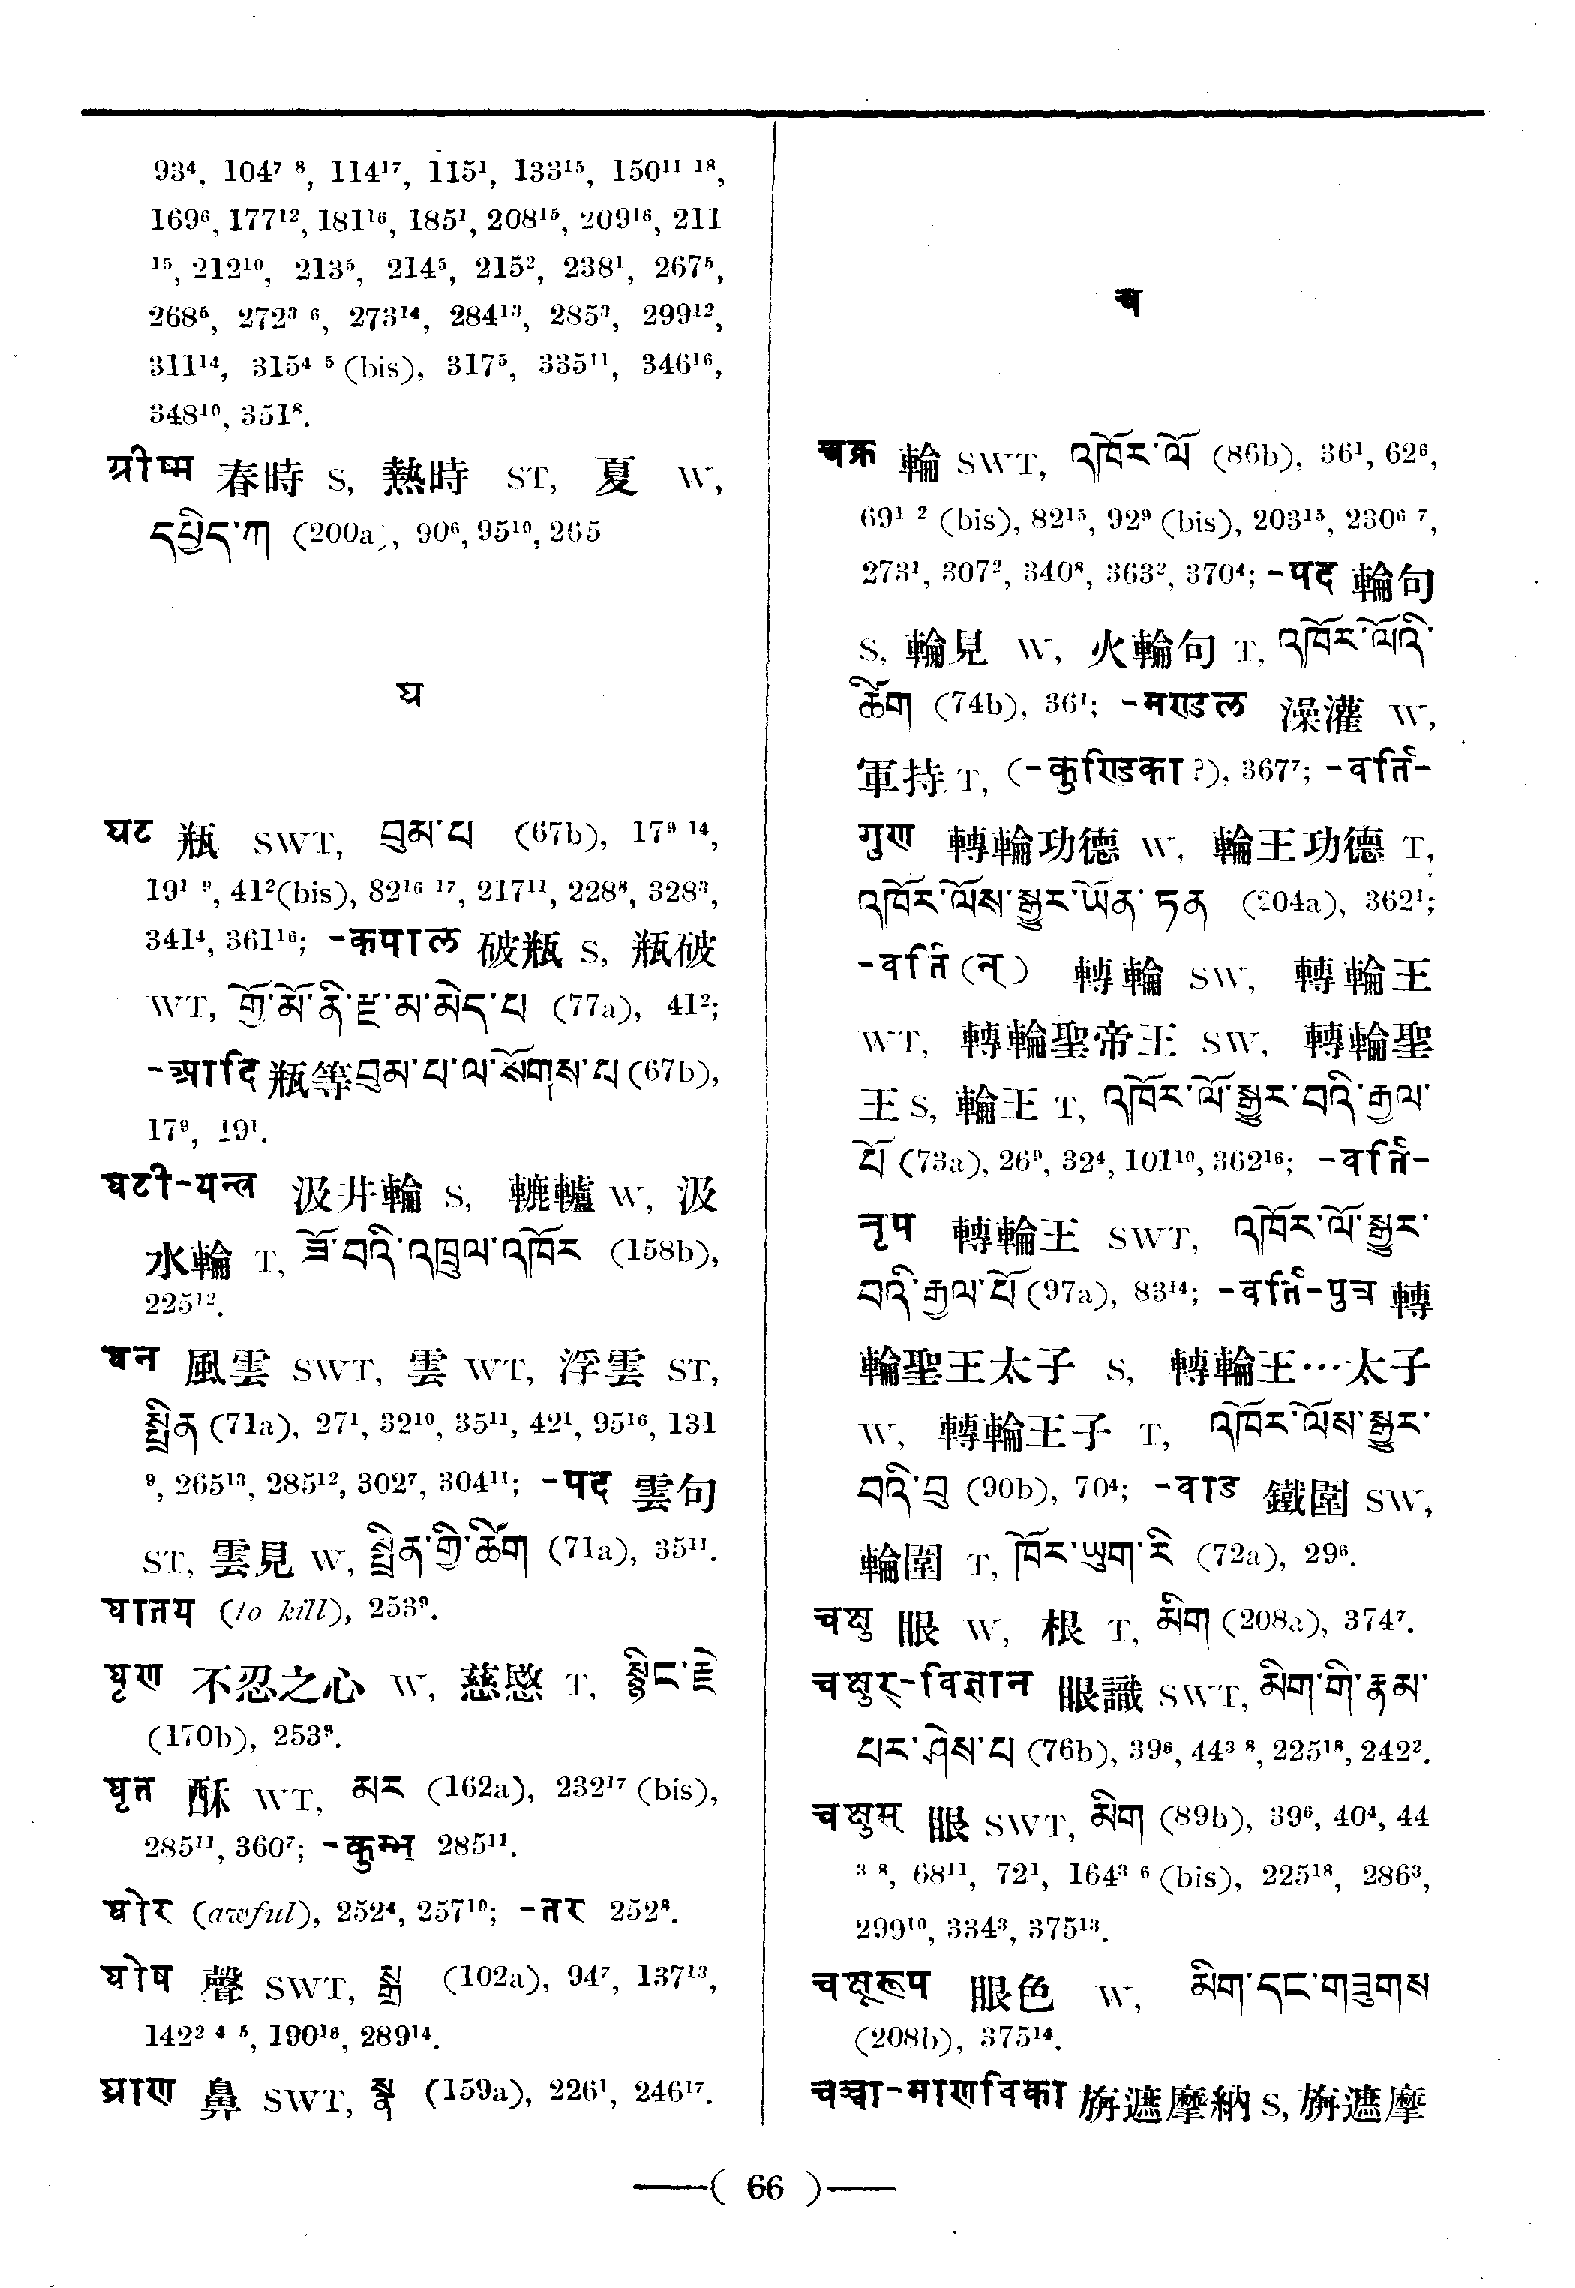 93⁴, 104⁷ ⁸, 114¹⁷, 115¹, 133¹⁵, 150¹¹ ¹⁸,
169⁶, 177¹², 181¹⁶, 185¹, 208¹⁵, 209¹⁶, 211
¹⁵, 212¹⁰, 213⁵, 214⁵, 215², 238¹, 267⁵,
268⁵, 272³ ⁶, 273¹⁴, 284¹³, 285³, 299¹²,
311¹⁴, 315⁴ ⁵ (bis), 317⁵, 335¹¹, 346¹⁶,
348¹⁰, 351⁸.
ग्रीष्म 春時 S, 熱時 ST, 夏 W,
དཔྱིད་ཀ (200a), 90⁶, 95¹⁰, 265
घ
घट 瓶 SWT, བུམ་པ (67b), 17⁹ ¹⁴,
19¹ ⁹, 41²(bis), 82¹⁶ ¹⁷, 217¹¹, 228⁸, 328³,
341⁴, 361¹⁶; -कपाल 破瓶 S, 瓶破
WT, གྱོ་མོ་ནི་རྫ་མ་མེད་པ (77a), 41²;
-आदि 瓶等 བུམ་པ་ལ་སོགས་པ (67b),
17⁹, 19¹.
घटी-यन्त्र 汲井輪 S, 轆轤 W, 汲
水輪 T, ཟོ་བའི་འཁྲུལ་འཁོར (158b),
225¹².
घन 風雲 SWT, 雲 WT, 浮雲 ST,
སྤྲིན (71a), 27¹, 32¹⁰, 35¹¹, 42¹, 95¹⁶, 131
⁹, 265¹³, 285¹², 302⁷, 304¹¹; -पद 雲句
ST, 雲見 W, སྤྲིན་གྱི་ཚིག (71a), 35¹¹.
घातय (to kill), 253⁹.
घृण 不忍之心 W, 慈愍 T, སྙིང་རྗེ
(170b), 253⁹.
घृत 酥 WT, མར (162a), 232¹⁷ (bis),
285¹¹, 360⁷; -कुम्भ 285¹¹.
घोर (awful), 252⁴, 257¹⁰; -तर 252⁸.
घोष 聲 SWT, སྒྲ (102a), 94⁷, 137¹³,
142² ⁴ ⁵, 190¹⁶, 289¹⁴.
घ्राण 鼻 SWT, སྣ (159a), 226¹, 246¹⁷.
च
चक्र 輪 SWT, འཁོར་ལོ (86b), 36¹, 62⁶,
69¹ ² (bis), 82¹⁵, 92⁹ (bis), 203¹⁵, 230⁶ ⁷,
273¹, 307², 340⁸, 363², 370⁴; -पद 輪句
S, 輪見 W, 火輪句 T, འཁོར་ལོའི་
ཚིག (74b), 36¹; -मण्डल 澡灌 W,
軍持 T, (-कुण्डिका ?), 367⁷; -वर्ति-
गुण 轉輪功德 W, 輪王功德 T,
འཁོར་ལོས་སྒྱུར་ཡོན་ཏན (204a), 362¹;
-वर्ति(न्) 轉輪 SW, 轉輪王
WT, 轉輪聖帝王 SW, 轉輪聖
王 S, 輪王 T, འཁོར་ལོ་སྒྱུར་བའི་རྒྱལ་
པོ (73a), 26⁹, 32⁴, 101¹⁰, 362¹⁶; -वर्ति-
नृप 轉輪王 SWT, འཁོར་ལོ་སྒྱུར་
བའི་རྒྱལ་པོ (97a), 83¹⁴; -वर्ति-पुत्र 轉
輪聖王太子 S, 轉輪王…太子
W, 轉輪王子 T, འཁོར་ལོས་སྒྱུར་
བའི་བུ (90b), 70⁴; -वाड 鐵圍 SW,
輪圍 T, ཁོར་ཡུག་རི (72a), 29⁶.
चक्षु 眼 W, 根 T, མིག (208a), 374⁷.
चक्षुर्-विज्ञान 眼識 SWT, མིག་གི་རྣམ་
པར་ཤེས་པ (76b), 39⁶, 44³ ⁸, 225¹⁸, 242².
चक्षुस् 眼 SWT, མིག (89b), 39⁶, 40⁴, 44
³ ⁸, 68¹¹, 72¹, 164³ ⁶ (bis), 225¹⁸, 286³,
299¹⁰, 334³, 375¹³.
चक्षूरूप 眼色 W, མིག་དང་གཟུགས
(208b), 375¹⁴.
चञ्चा-माणविका 旃遮摩納 S, 旃遮摩
—( 66 )—